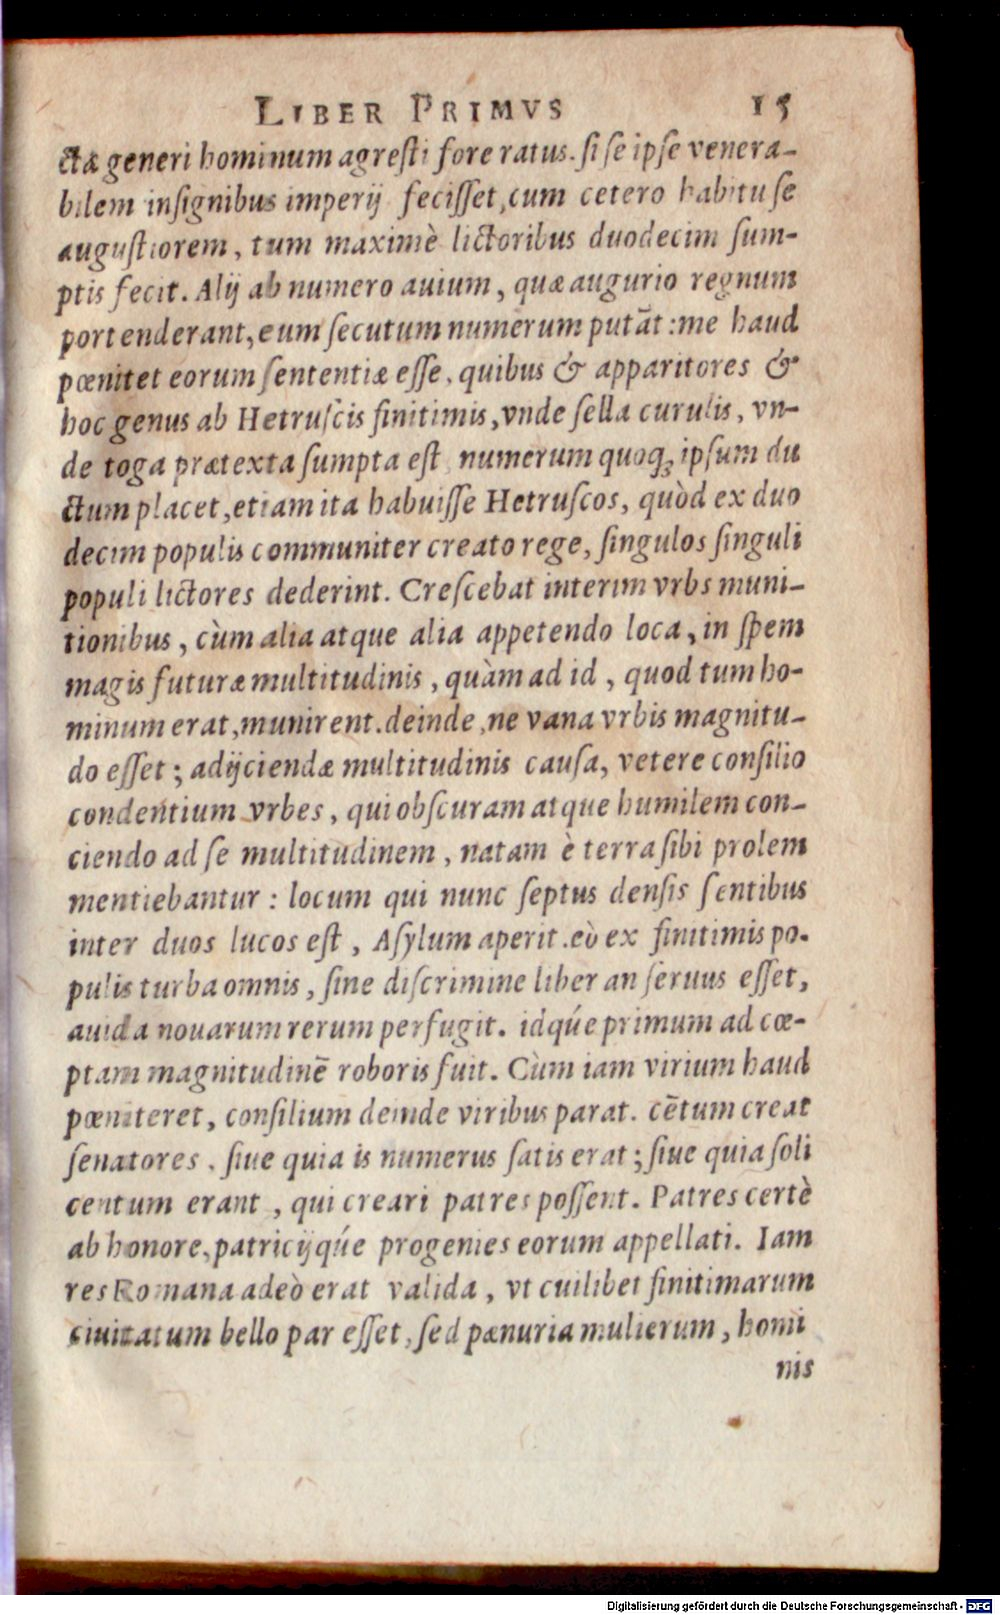 LIBER PRIMVS 15
ctæ generi hominum agresti fore ratus. si se ipse venera-
bilem insignibus imperij fecisset, cum cetero habitu se
augustiorem, tum maximè lictoribus duodecim sum-
ptis fecit. Alij ab numero auium, quæ augurio regnum
portenderant, eum secutum numerum putāt: me haud
pœnitet eorum sententiæ esse, quibus & apparitores &
hoc genus ab Hetruscis finitimis, vnde sella curulis, vn-
de toga prætexta sumpta est, numerum quoq; ipsum du
ctum placet, etiam ita habuisse Hetruscos, quòd ex duo
decim populis communiter creato rege, singulos singuli
populi lictores dederint. Crescebat interim vrbs muni-
tionibus, cùm alia atque alia appetendo loca, in spem
magis futuræ multitudinis, quàm ad id, quod tum ho-
minum erat, munirent. deinde, ne vana vrbis magnitu-
do esset; adijciendæ multitudinis causa, vetere consilio
condentium vrbes, qui obscuram atque humilem con-
ciendo ad se multitudinem, natam è terra sibi prolem
mentiebantur: locum qui nunc septus densis sentibus
inter duos lucos est, Asylum aperit. eò ex finitimis po-
pulis turba omnis, sine discrimine liber an seruus esset,
auida nouarum rerum perfugit. idqúe primum ad cœ-
ptam magnitudinē roboris fuit. Cùm iam virium haud
pœniteret, consilium deinde viribus parat. cētum creat
senatores, siue quia is numerus satis erat; siue quia soli
centum erant, qui creari patres possent. Patres certè
ab honore, patricijqúe progenies eorum appellati. Iam
res Romana adeò erat valida, vt cuilibet finitimarum
ciuitatum bello par esset, sed pænuria mulierum, homi
nis
Digitalisierung gefördert durch die Deutsche Forschungsgemeinschaft - DFG